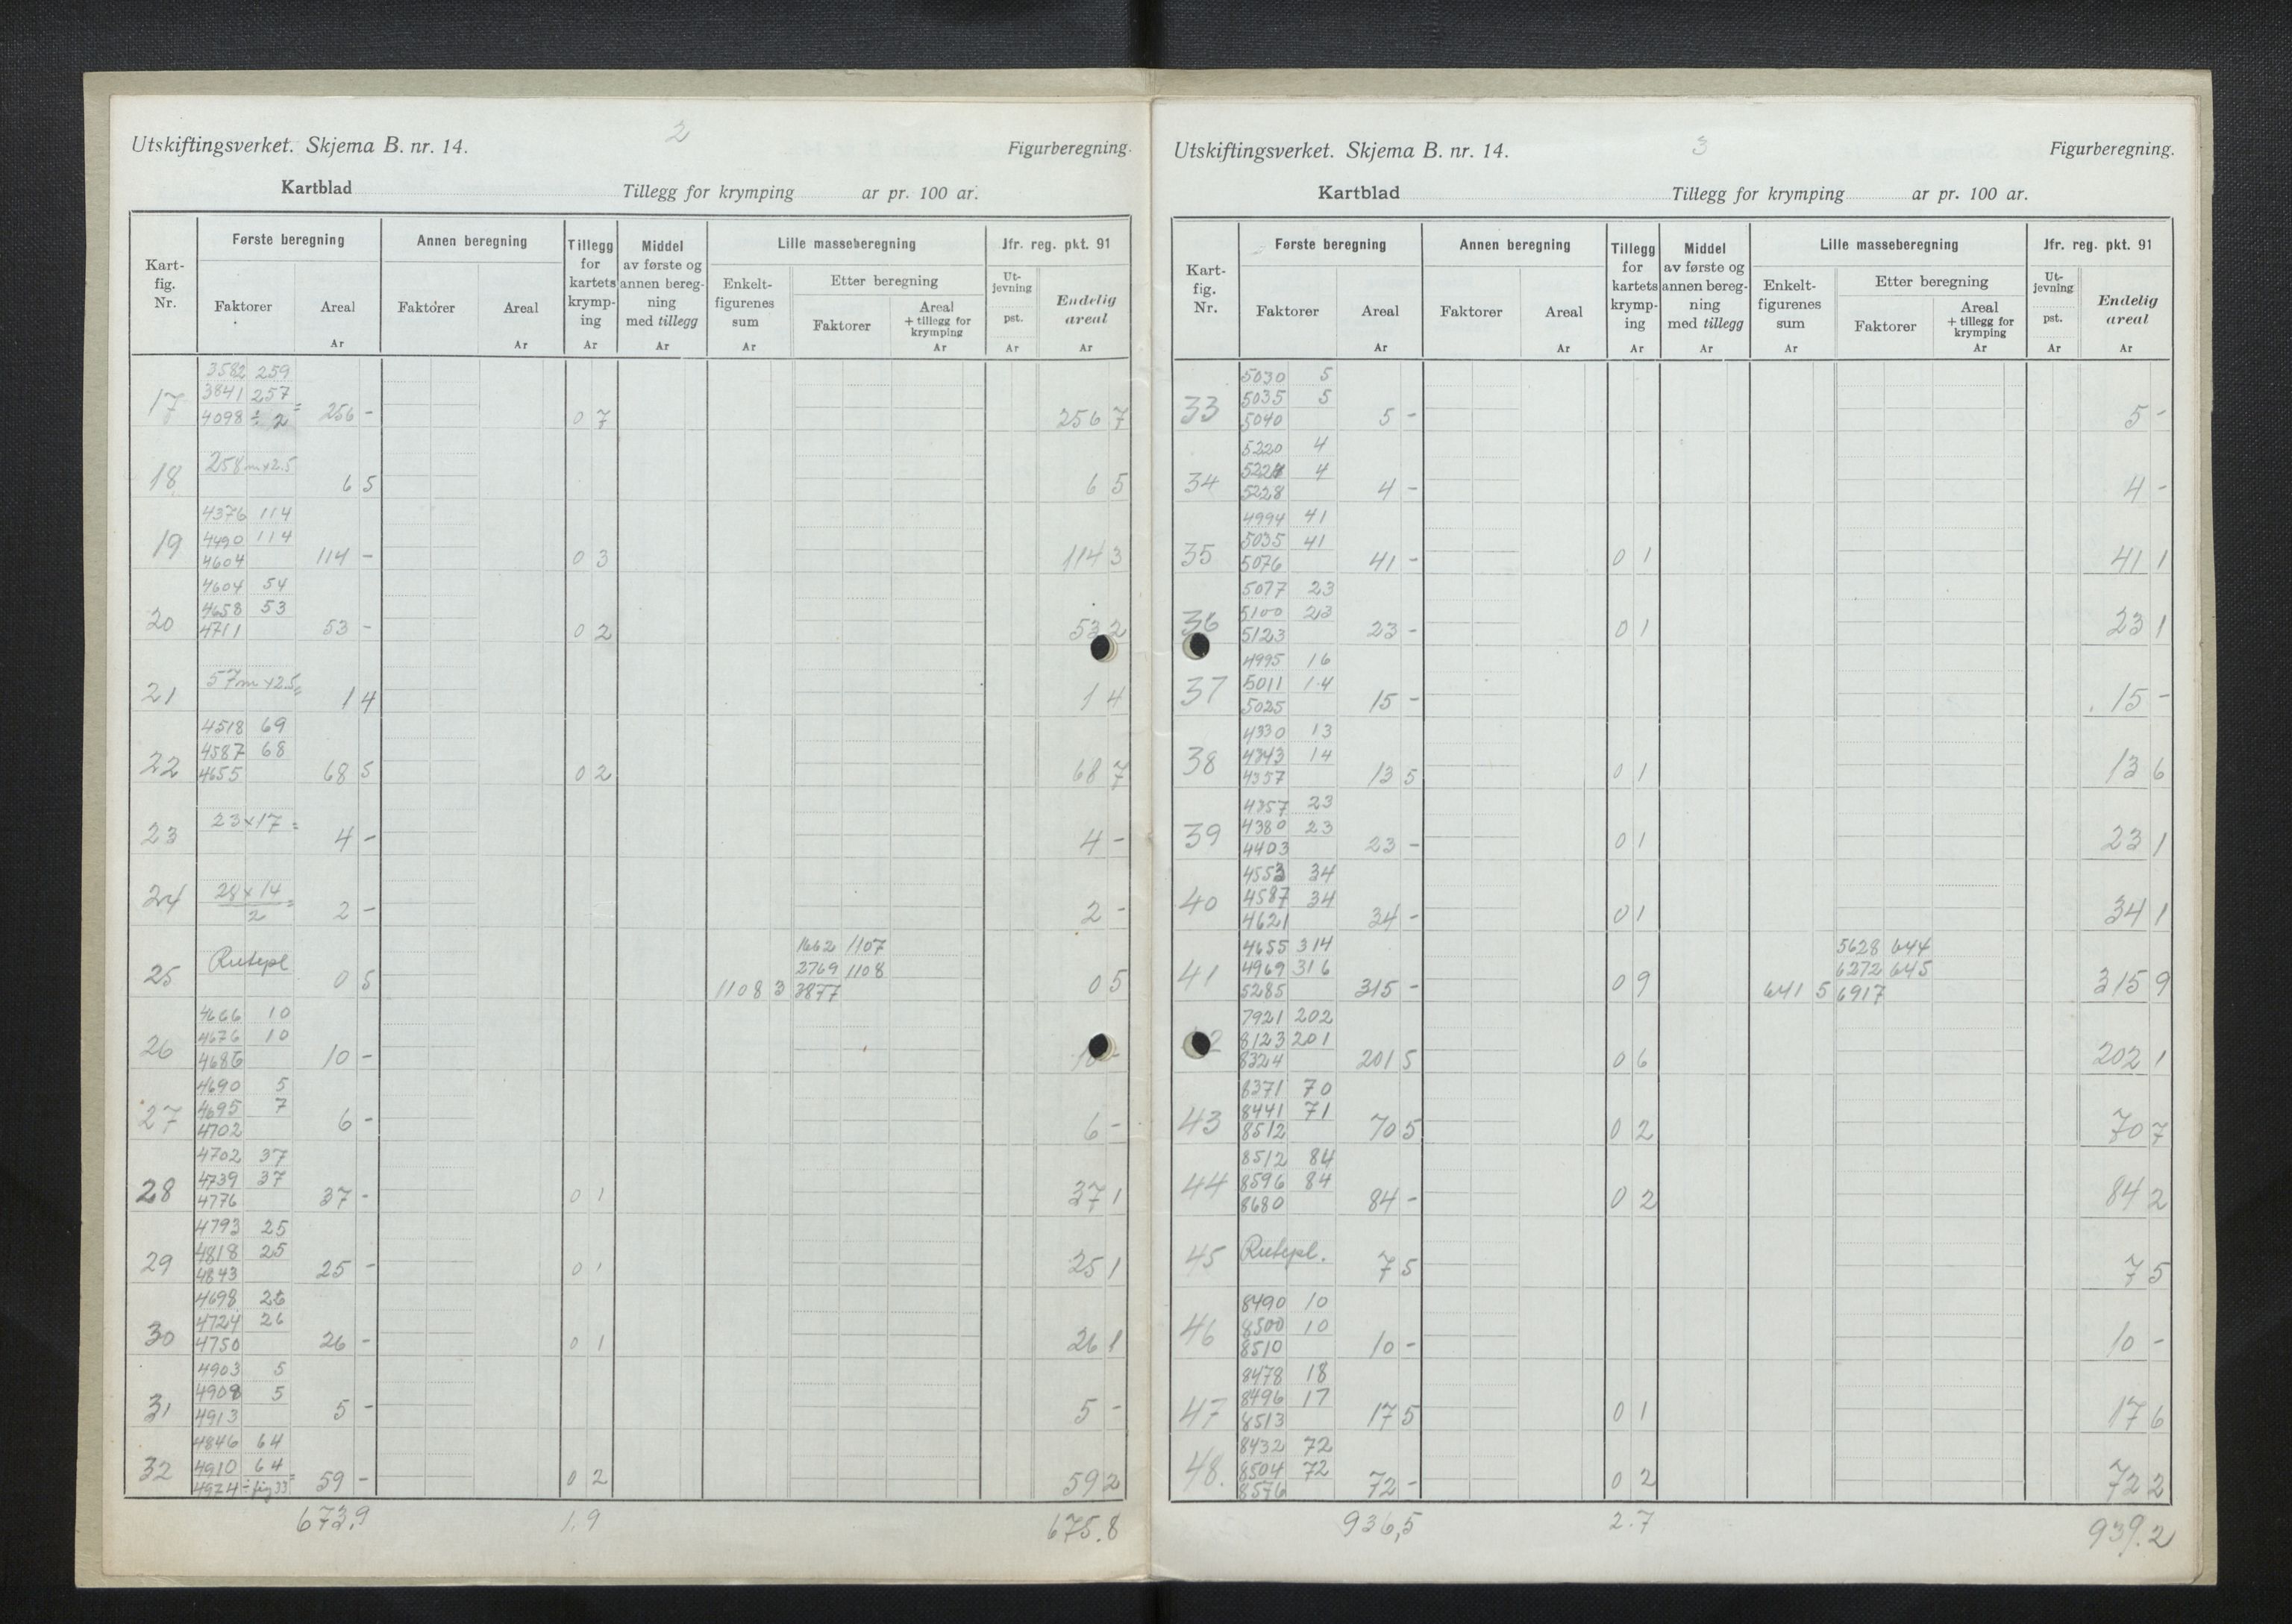 2
Utskiftingsverket. Skjema B. nr. 14. Figurberegning.
Kartblad Tillegg for krymping ar pr. 100 ar.
Kart-fig. Nr. Første beregning Annen beregning Tillegg for kartets krymp-ing Middel av første og annen bereg-ning med tillegg Lille masseberegning Jfr. reg. pkt. 91
Enkelt-figurenes sum Etter beregning Ut-jevning pst. Endelig areal
Faktorer Areal Faktorer Areal Faktorer Areal + tillegg for krymping
Ar Ar Ar Ar Ar Ar Ar Ar
3582 259
3841 257
17 4098 ÷ 2 = 256 - 0 7 256 7
258m×2.5
18 6 5 6 5
4376 114
4490 114
19 4604 114 - 0 3 114 3
4604 54
4658 53
20 4711 53 - 0 2 53 2
57m×2.5=
21 1 4 1 4
4518 69
4587 68
22 4655 68 5 0 2 68 7
23×17=
23 4 - 4 -
24 28×14 = 2 - 2 -
2
Rutepl 1662 1107
2769 1108
25 0 5 1108 3 3877 0 5
4666 10
4676 10
26 4686 10 - 10 -
4690 5
4695 7
27 4702 6 - 6 -
4702 37
4739 37
28 4776 37 - 0 1 37 1
4793 25
4818 25
29 4843 25 - 0 1 25 1
4698 26
4724 26
30 4750 26 - 0 1 26 1
4903 5
4908 5
31 4913 5 - 5 -
4846 64
4910 64
32 4974 ÷ fig 33 = 59 - 0 2 59 2
673,9 1,9 675.8
3
Utskiftingsverket. Skjema B. nr. 14. Figurberegning.
Kartblad Tillegg for krymping ar pr. 100 ar.
Kart-fig. Nr. Første beregning Annen beregning Tillegg for kartets krymp-ing Middel av første og annen bereg-ning med tillegg Lille masseberegning Jfr. reg. pkt. 91
Enkelt-figurenes sum Etter beregning Ut-jevning pst. Endelig areal
Faktorer Areal Faktorer Areal Faktorer Areal + tillegg for krymping
Ar Ar Ar Ar Ar Ar Ar Ar
5030 5
5035 5
33 5040 5 - 5 -
5220 4
5224 4
34 5228 4 - 4 -
4994 41
5035 41
35 5076 41 - 0 1 41 1
5077 23
5100 23
36 5123 23 - 0 1 23 1
4995 16
5011 14
37 5025 15 - 15 -
4330 13
4343 14
38 4357 13 5 0 1 13 6
4357 23
4380 23
39 4403 23 - 0 1 23 1
4553 34
4587 34
40 4621 34 - 0 1 34 1
4655 314 5628 644
4969 316 6272 645
41 5285 315 - 0 9 641 5 6917 315 9
7921 202
8123 201
8324 201 5 0 6 202 1
8371 70
8441 71
43 8512 70 5 0 2 70 7
8512 84
8596 84
44 8680 84 - 0 2 84 2
45 Rutepl. 7 5 7 5
8490 10
8500 10
46 8510 10 - 10 -
8478 18
8496 17
47 8513 17 5 0 1 17 6
8432 72
8504 72
48. 8576 72 - 0 2 72 2
936,5 2.7 939.2